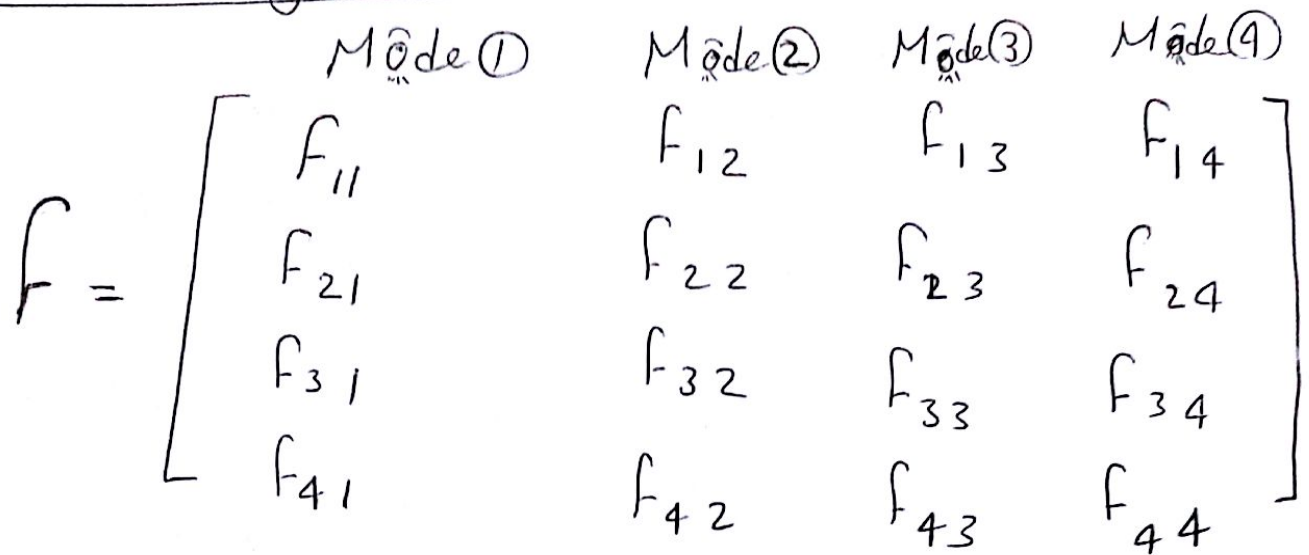 Mode ① Mode ② Mode ③ Mode ④
F11 F12 F13 F14
F21 F22 F23 F24
F =
F31 F32 F33 F34
F41 F42 F43 F44